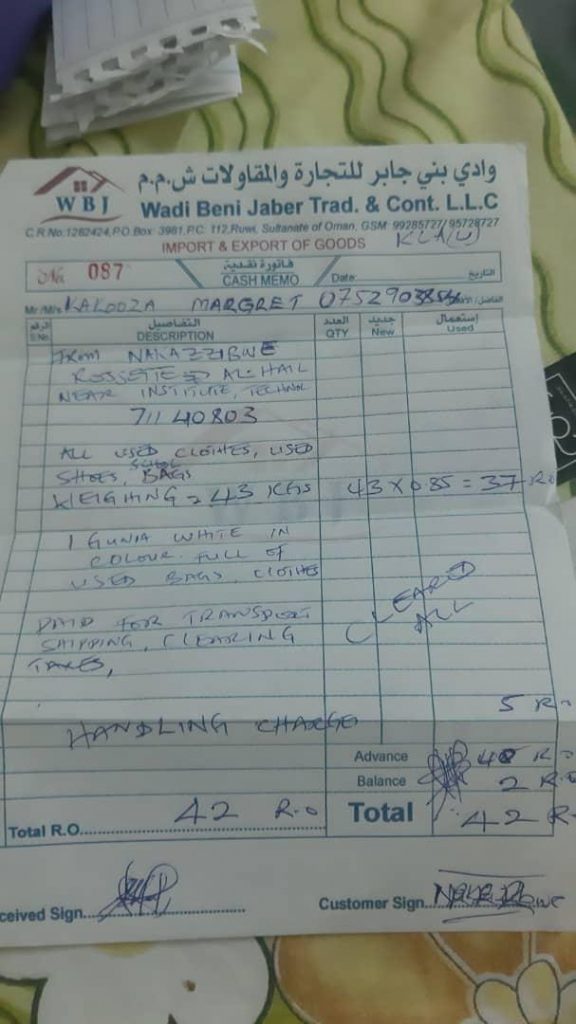 وادي بني جابر للتجارة والمقاولات ش.م.م
WBJ
Wadi Beni Jaber Trad. & Cont. L.L.C
C.R.No.1282424,P.O.Box: 3981,P.C: 112,Ruwi, Sultanate of Oman, GSM: 99285727/95728727
IMPORT & EXPORT OF GOODS
KLA(U)
No 087
فاتورة نقدية
CASH MEMO
Date:
التاريخ
Mr./M/s. KALOOZA MARGRET
الرقم التفاصيل العدد جديد إستعمال
S.No. DESCRIPTION QTY New Used
FROM NAKAZZIBWE
ROSSETTE AL-HAIL
NEAR INSTITUTE, TECHNI
71140803
ALL USED CLOTHES, USED
SHOES, SCHOOL BAGS
WEIGHING = 43 KGS 43 X 0.85 = 37 R.O
1 GUNIA WHITE IN
COLOUR FULL OF
USED BAGS, CLOTHES
CLEARED
ALL
PAID FOR TRANSPORT
SHIPPING, CLEARING
TAXES,
5 R.O
HANDLING CHARGE
Advance 40 R.O
Balance 2 R.O
Total R.O. 42 R.O Total 42 R.
ceived Sign. Customer Sign.